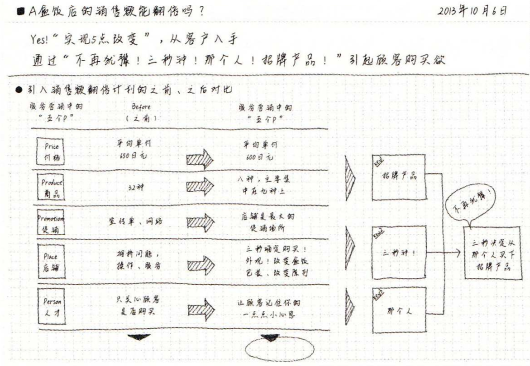 ■ A盒饭店的销售额能翻倍吗？
2013年10月6日
Yes！“实现5点改变”，从客户入手
通过“不再犹豫！三秒钟！那个人！招牌产品！”引起顾客购买欲
● 引入销售额翻倍计划的之前、之后对比
服务营销中的
“五个P”
Before
（之前）
服务营销中的
“五个P”
Price
价格
平均单价
650日元
平均单价
600日元
Product
商品
32种
八种，主要集
中在七种上
Promotion
促销
宣传单、网络
店铺是最大的
促销场所
Place
店铺
操作、服务
三秒确定购买！
外观！改变盒饭
包装、改变陈列
Person
人才
只关心顾客
是否购买
让顾客记住你的
一点点小心思
招牌产品
三秒钟！
那个人
不再犹豫！
三秒决定从
那个人买下
招牌产品